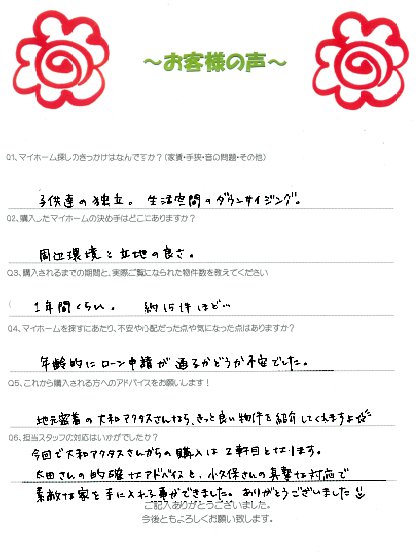 ～お客様の声～
Q1、マイホーム探しのきっかけはなんですか？（家賃・手狭・音の問題・その他）
子供達の独立。生活空間のダウンサイジング。
Q2、購入したマイホームの決め手はどこにありますか？
周辺環境と立地の良さ。
Q3、購入されるまでの期間と、実際ご覧になられた物件数を教えてください
1年間くらい。 約15件ほど…
Q4、マイホームを探すにあたり、不安や心配だった点や気になった点はありますか？
年齢的にローン申請が通るかどうか不安でした。
Q5、これから購入される方へのアドバイスをお願いします！
地元密着の大和アクタスさんなら、きっと良い物件を紹介してくれますよ
Q6、担当スタッフの対応はいかがでしたか？
今回で大和アクタスさんからの購入は2軒目となります。
太田さんの的確なアドバイスと、小久保さんの真摯な対応で
素敵な家を手に入れる事ができました。ありがとうございました
ご記入ありがとうございました。
今後ともよろしくお願い致します。